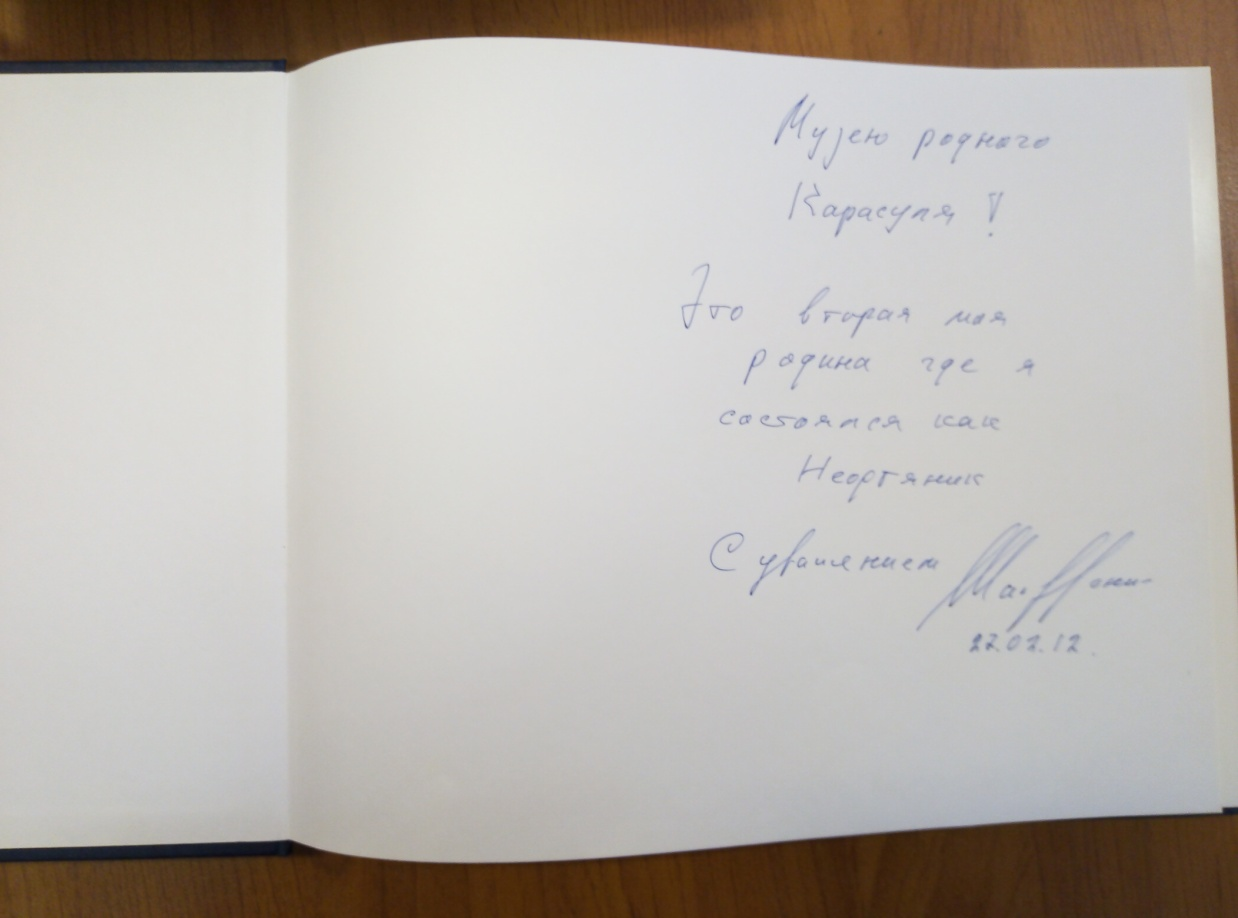 Музею родного
Карасуля!
Это вторая моя
родина где я
состоялся как
Нефтяник
С уважением
27.02.12.